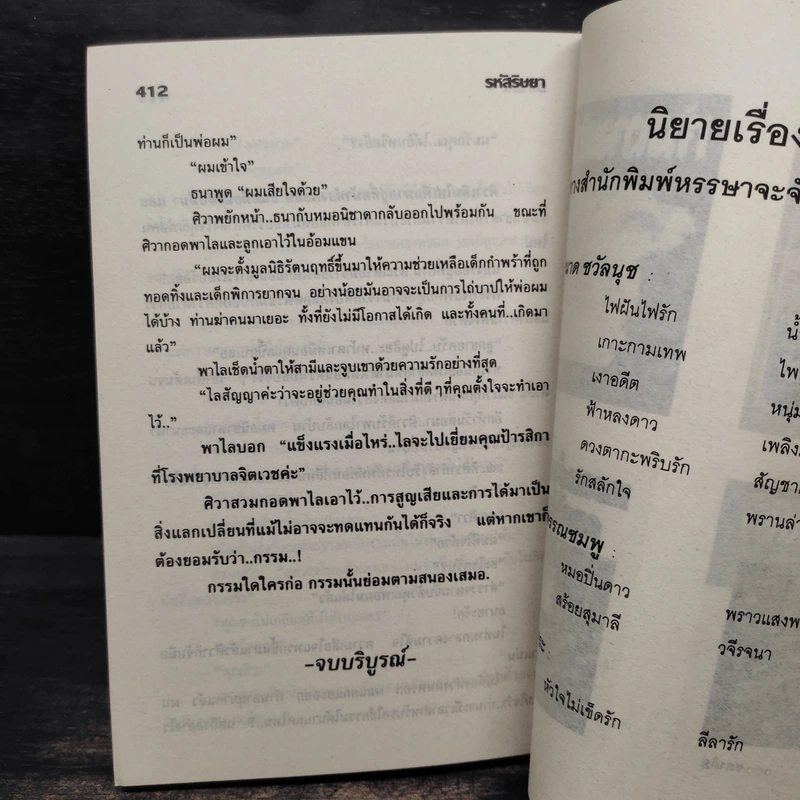 412
รหัสริษยา
ท่านก็เป็นพ่อผม”
“ผมเข้าใจ”
ธนาพูด “ผมเสียใจด้วย”
ศิวาพยักหน้า..ธนากับหมอนิชาดากลับออกไปพร้อมกัน ขณะที่
ศิวากอดพาไลและลูกเอาไว้ในอ้อมแขน
“ผมจะตั้งมูลนิธิรัตนฤทธิ์ขึ้นมาให้ความช่วยเหลือเด็กกำพร้าที่ถูก
ทอดทิ้งและเด็กพิการยากจน อย่างน้อยมันอาจจะเป็นการไถ่บาปให้พ่อผม
ได้บ้าง ท่านฆ่าคนมาเยอะ ทั้งที่ยังไม่มีโอกาสได้เกิด และทั้งคนที่..เกิดมา
แล้ว”
พาไลเช็ดน้ำตาให้สามีและจูบเขาด้วยความรักอย่างที่สุด
“ไลสัญญาค่ะว่าจะอยู่ช่วยคุณทำในสิ่งที่ดีๆที่คุณตั้งใจจะทำเอา
ไว้..”
พาไลบอก “แข็งแรงเมื่อไหร่..ไลจะไปเยี่ยมคุณป้ารสิกา
ที่โรงพยาบาลจิตเวชค่ะ”
ศิวาสวมกอดพาไลเอาไว้..การสูญเสียและการได้มาเป็น
สิ่งแลกเปลี่ยนที่แม้ไม่อาจจะทดแทนกันได้ก็จริง แต่หากเขาก็
ต้องยอมรับว่า..กรรม..!
กรรมใดใครก่อ กรรมนั้นย่อมตามสนองเสมอ.
-จบบริบูรณ์-
นิยายเรื่อง
ทางสำนักพิมพ์หรรษาจะจั
ชวัลนุช :
ไฟฝันไฟรัก
เกาะกามเทพ
เงาอดีต
ฟ้าหลงดาว
ดวงตากะพริบรัก
รักสลักใจ
รรณชมพู :
หมอปิ่นดาว
สร้อยสุมาลี
หัวใจไม่เข็ดรัก
น้ำ
ไพ
หนุ่ม
เพลิง
สัญชา
พรานล่า
พราวแสงพ
วจีรจนา
ลีลารัก